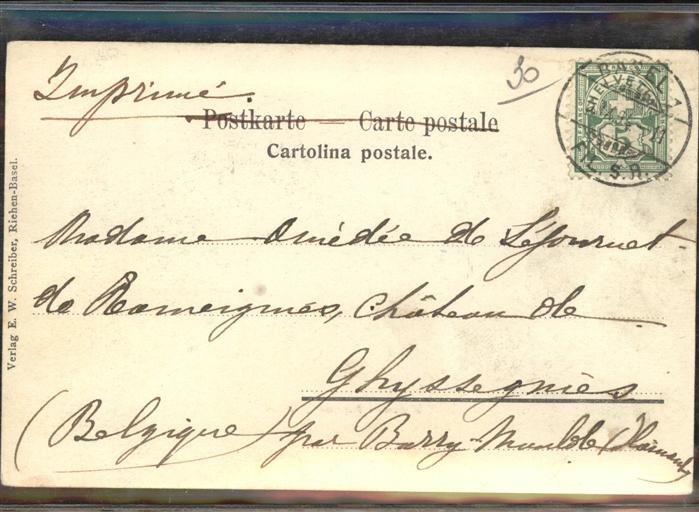 Imprimé.
30
Postkarte — Carte postale
Cartolina postale.
HELVETIA
Madame Amédée de Léjournet
de Rameignies, Château de
Ghyssegnies
(Belgique) par Barry-Maulde (Hainaut)
Verlag E. W. Schreiber, Riehen-Basel.